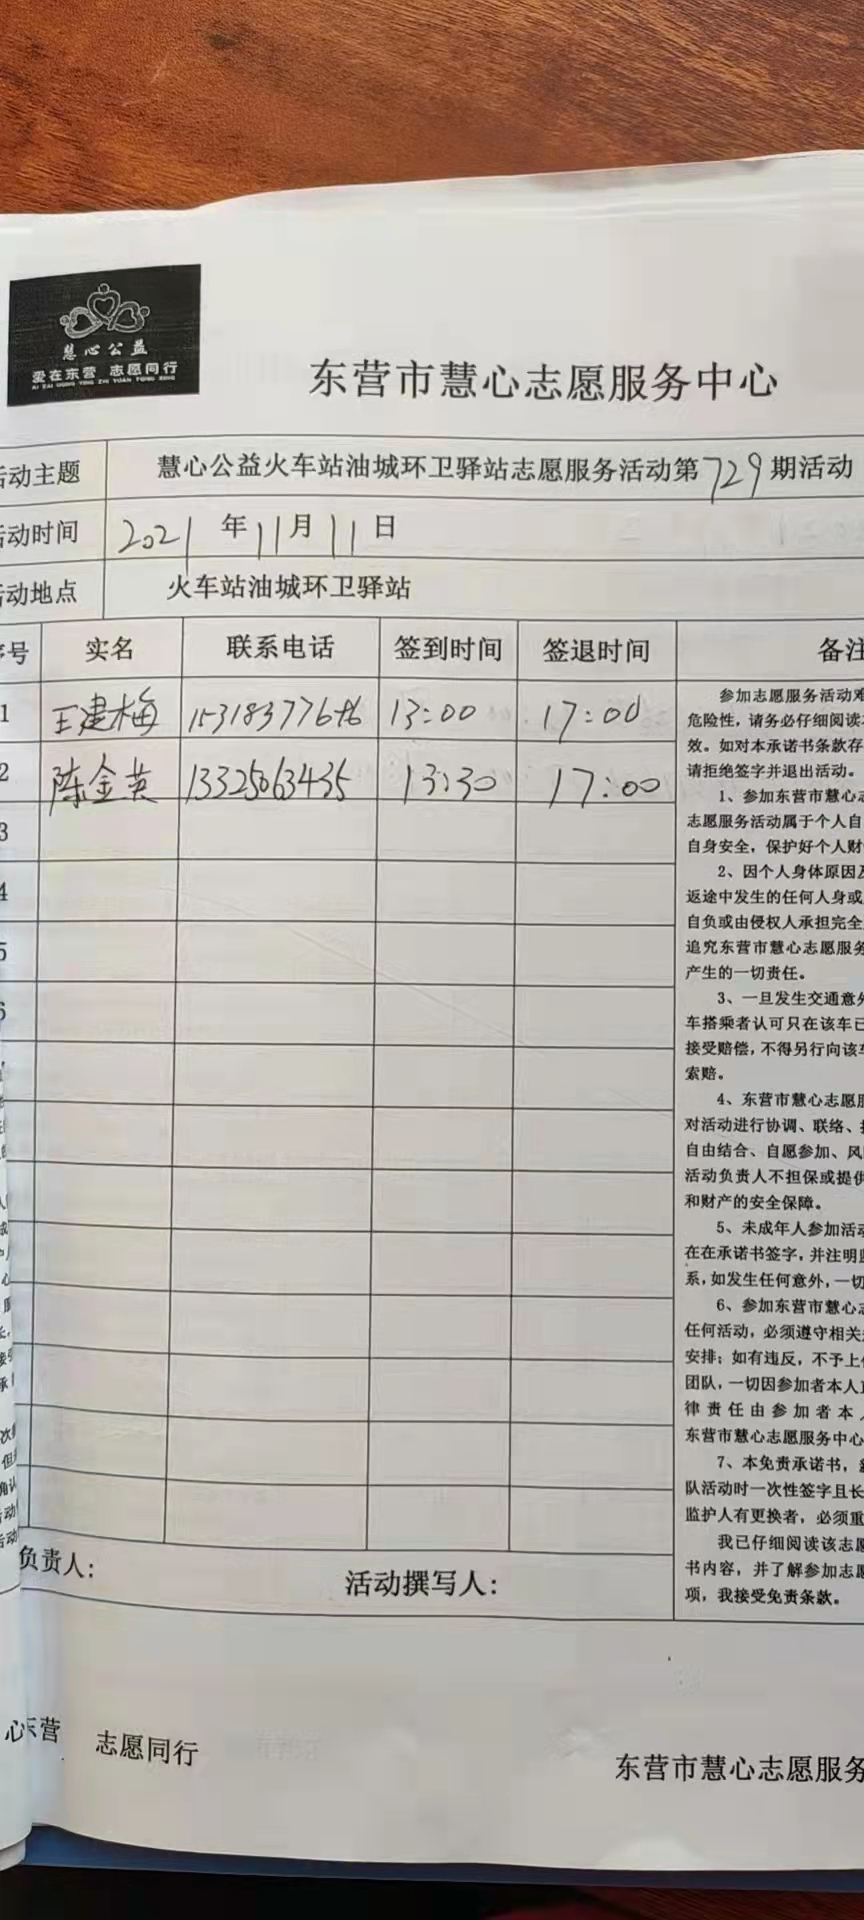 慧心公益
爱在东营 志愿同行
AI ZAI DONG YING ZHI YUAN TONG XING
东营市慧心志愿服务中心
活动主题 慧心公益火车站油城环卫驿站志愿服务活动第729期活动
活动时间 2021年11月11日
动地点 火车站油城环卫驿站
序号 实名 联系电话 签到时间 签退时间 备注
1 王建梅 13:00 17:00
2 陈金英 13325063435 13:30 17:00
3
4
5
6
参加志愿服务活动难
危险性，请务必仔细阅读
效。如对本承诺书条款存
请拒绝签字并退出活动。
1、参加东营市慧心志
志愿服务活动属于个人自
自身安全，保护好个人财
2、因个人身体原因及
返途中发生的任何人身或
自负或由侵权人承担完全
追究东营市慧心志愿服务
产生的一切责任。
3、一旦发生交通意外
车搭乘者认可只在该车已
接受赔偿，不得另行向该车
索赔。
4、东营市慧心志愿服
对活动进行协调、联络、
自由结合、自愿参加、风
活动负责人不担保或提供
和财产的安全保障。
5、未成年人参加活动
在在承诺书签字，并注明监
系，如发生任何意外，一切
6、参加东营市慧心志
任何活动，必须遵守相关
安排；如有违反，不予上
团队，一切因参加者本人
律责任由参加者本人
东营市慧心志愿服务中心
7、本免责承诺书，
队活动时一次性签字且长
监护人有更换者，必须重
我已仔细阅读该志愿
书内容，并了解参加志愿
项，我接受免责条款。
负责人： 活动撰写人：
心东营 志愿同行 东营市慧心志愿服务